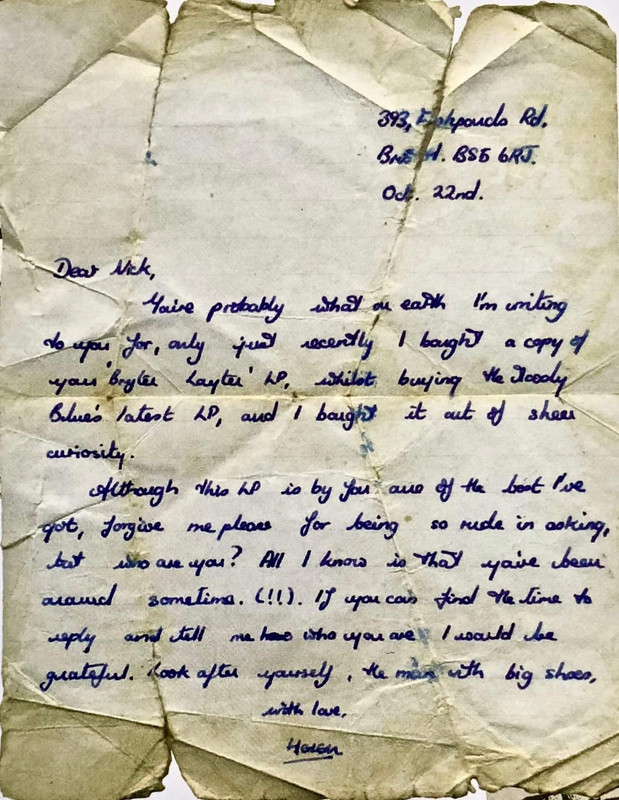 393, Fishponds Rd.
Bristol. BS5 6RJ.
Oct. 22nd.
Dear Nick,
You're probably what on earth I'm writing
to you for, only just recently I bought a copy of
your 'Bryter Layter' LP, whilst buying the Moody
Blue's latest LP, and I bought it out of sheer
curiosity.
Although this LP is by far one of the best I've
got, forgive me please for being so rude in asking,
but who are you? All I know is that you've been
around sometime. (!!). If you can find the time to
reply and tell me who you are I would be
grateful. Look after yourself, the man with big shoes,
with love,
Helen